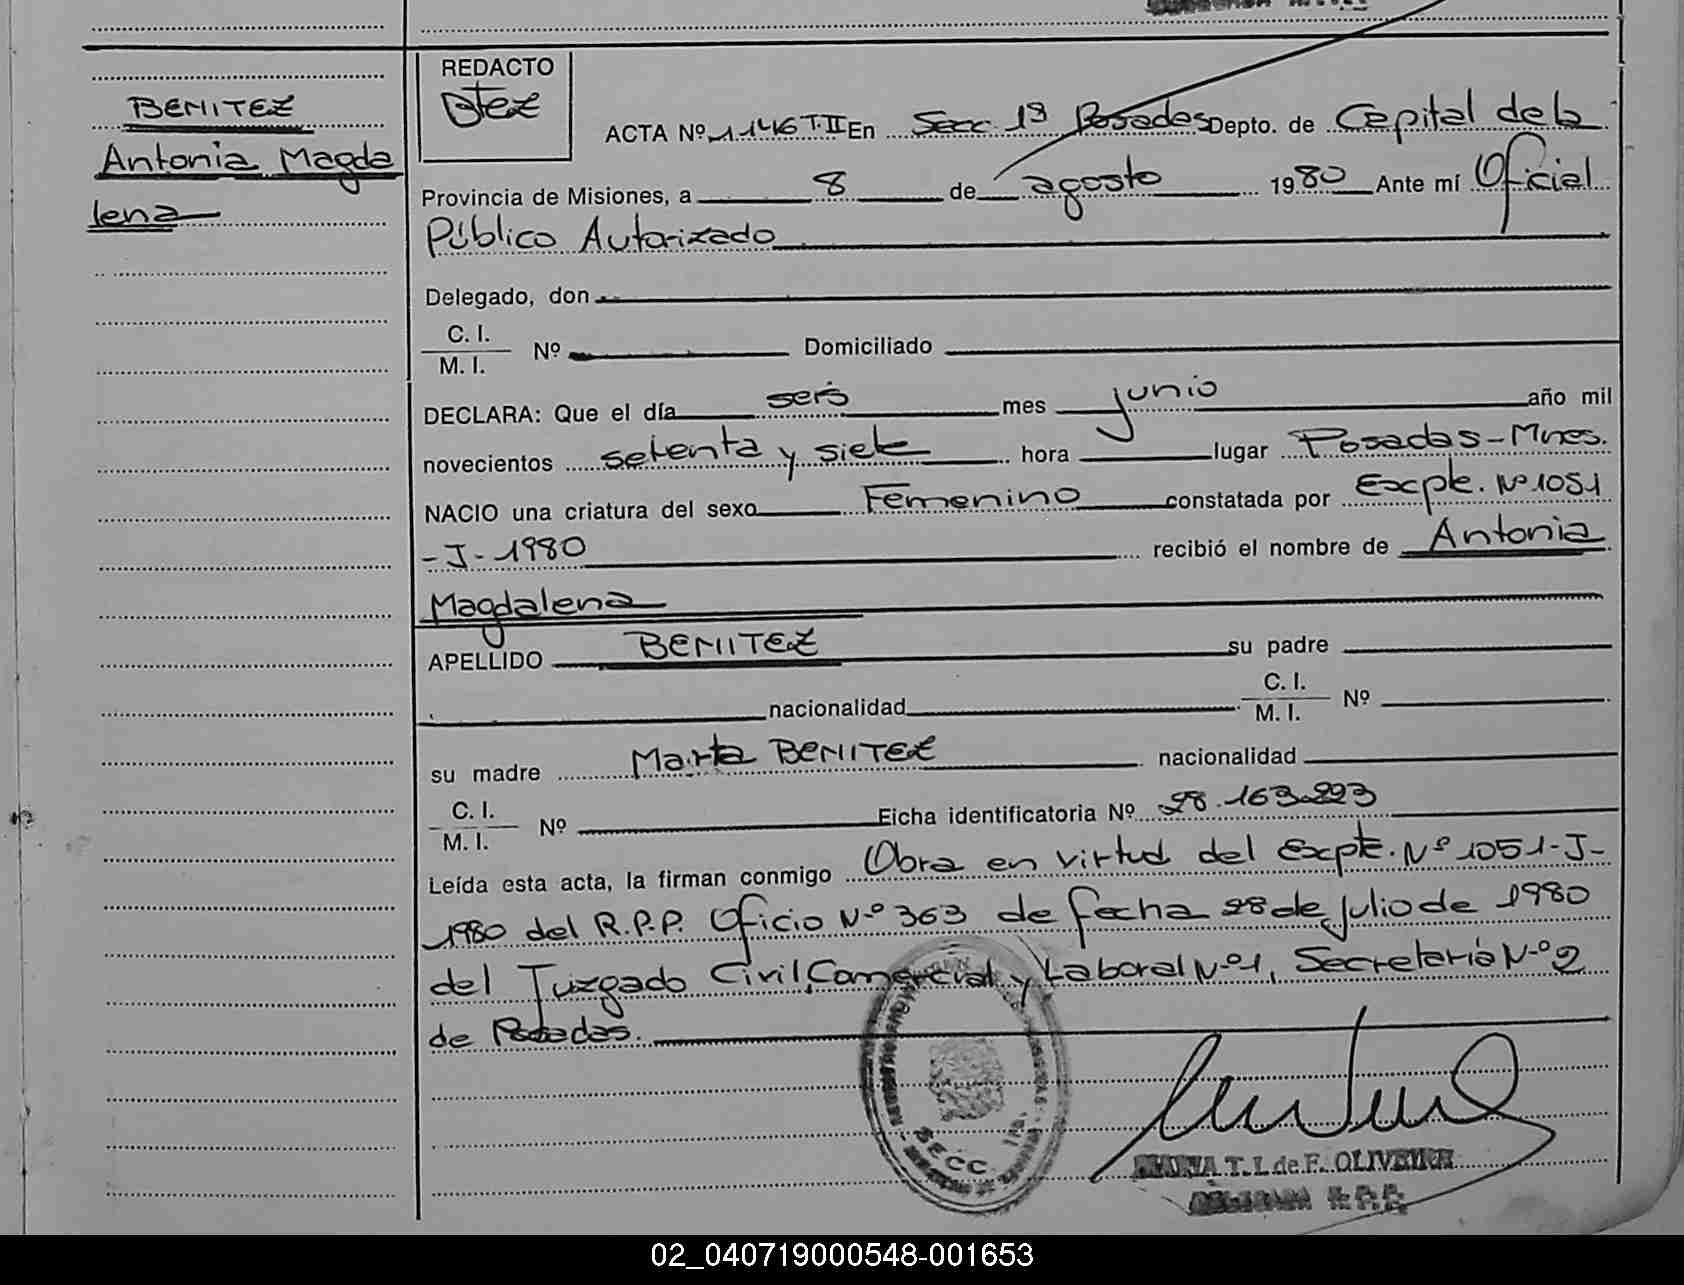 BENITEZ
Antonia Magda
lena
REDACTO
Btez
ACTA Nº 1146 T.II En Secc 1ª Posadas Depto. de Capital de la
Provincia de Misiones, a 8 de agosto 1980 Ante mí Oficial
Público Autorizado
Delegado, don
C. I.
M. I. Nº Domiciliado
DECLARA: Que el día seis mes junio año mil
novecientos setenta y siete hora lugar Posadas-Mnes.
NACIO una criatura del sexo Femenino constatada por Excpte. Nº 1051
-J-1980 recibió el nombre de Antonia
Magdalena
APELLIDO BENITEZ su padre
nacionalidad C. I. M. I. Nº
su madre Marta BENITEZ nacionalidad
C. I.
M. I. Nº Ficha identificatoria Nº 28.163.223
Leída esta acta, la firman conmigo Obra en virtud del Excpte. Nº 1051-J-
1980 del R.P.P. Oficio Nº 363 de fecha 28 de Julio de 1980
del Juzgado Civil, Comercial y Laboral Nº 1, Secretaría Nº 2
de Posadas.
SECC 1ra.
MARIA T. I. de F. OLIVEIRA
DELEGADA R.P.P.
02_040719000548-001653